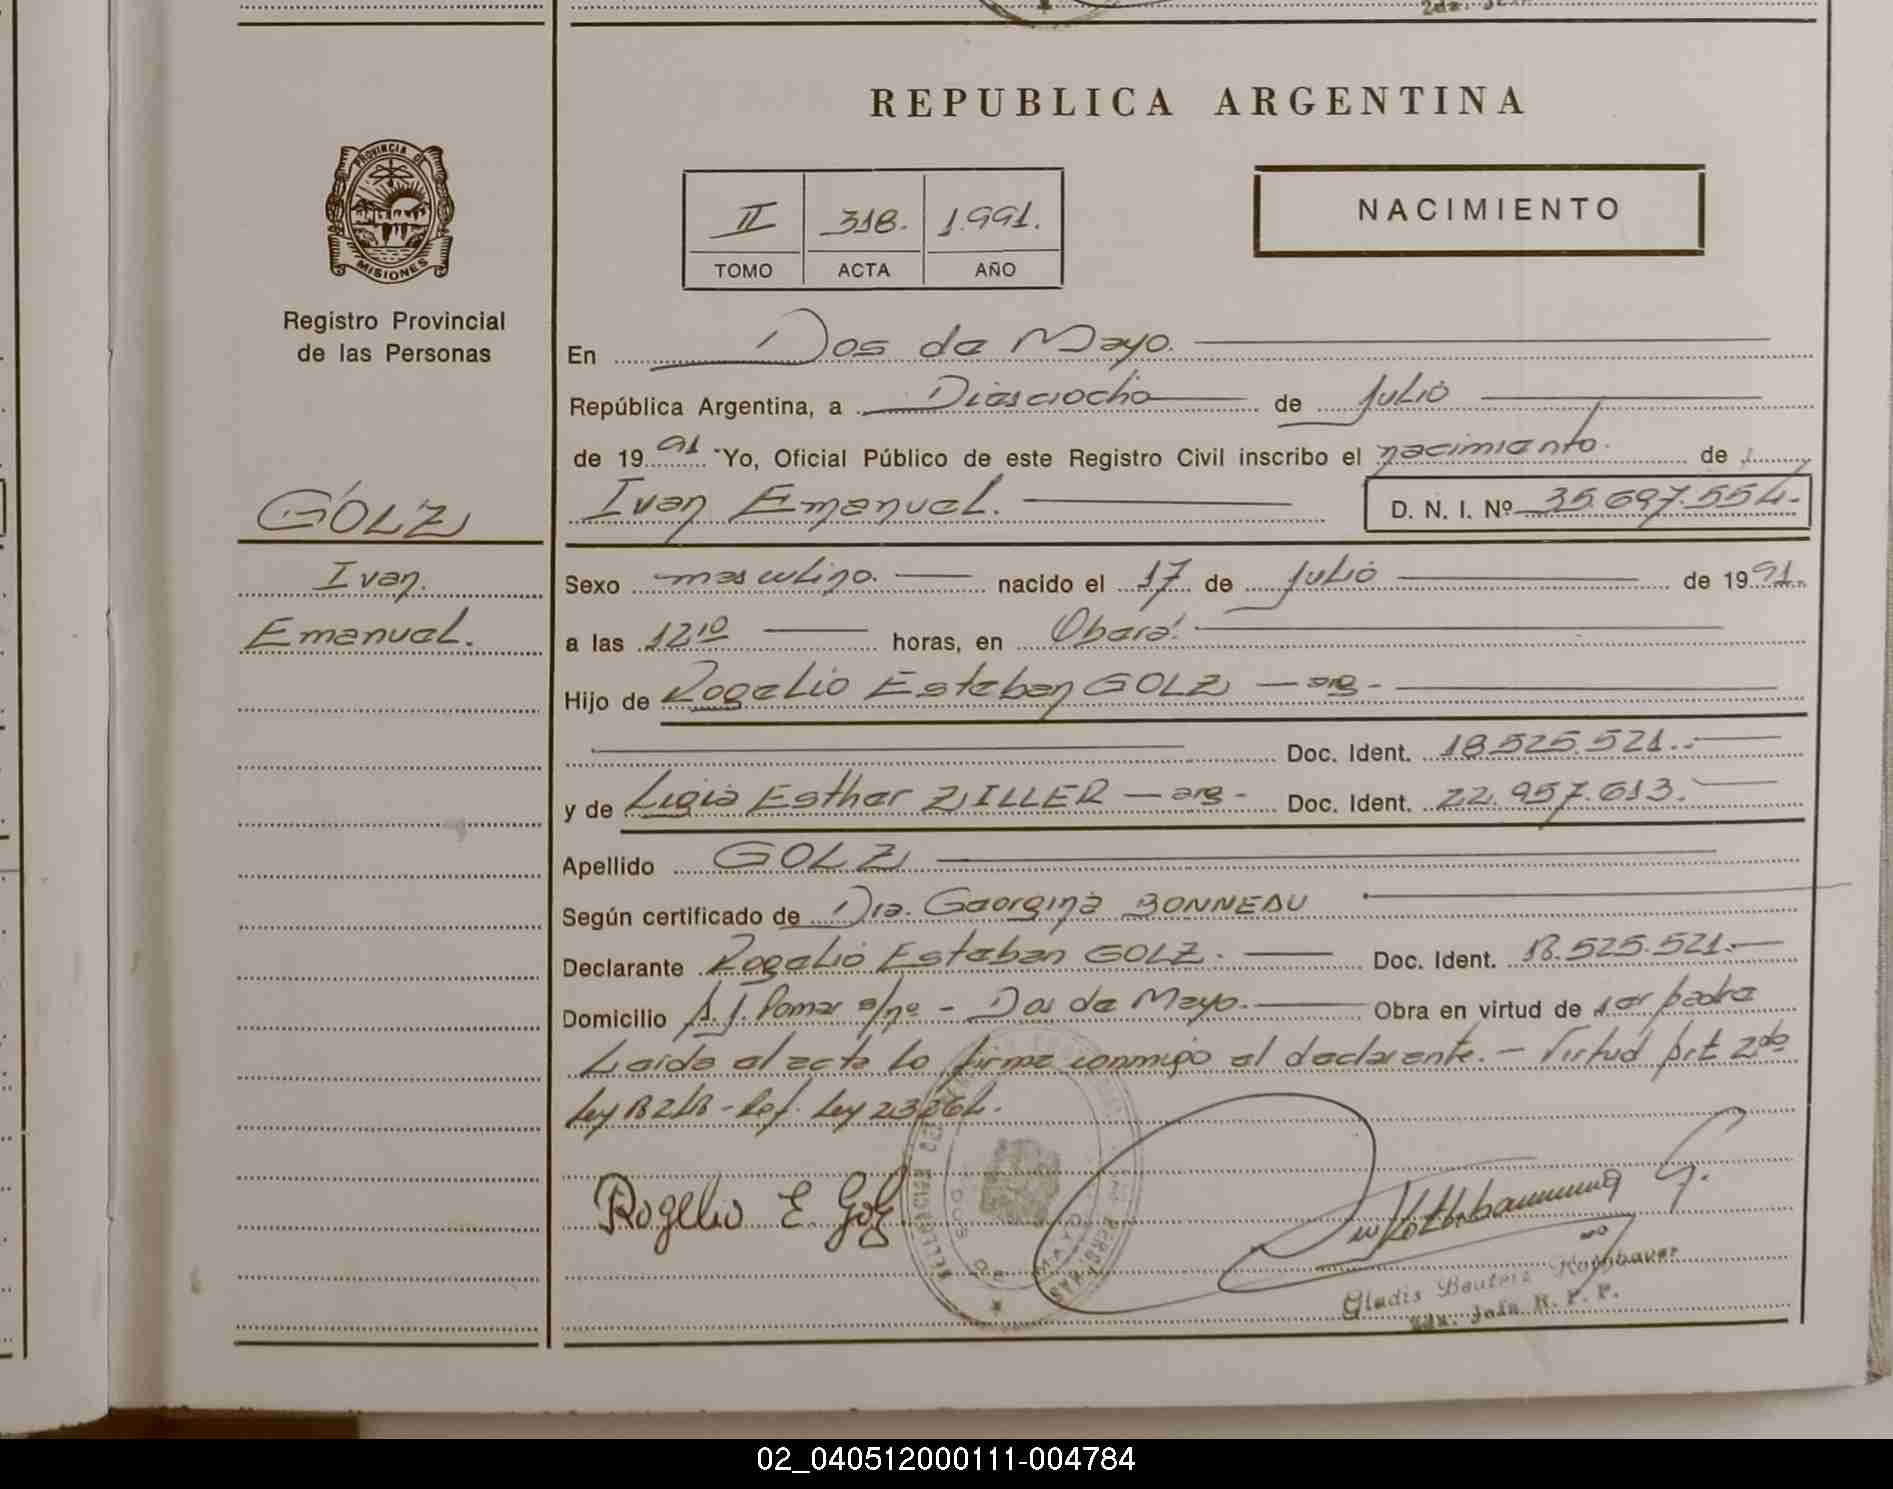 REPUBLICA ARGENTINA
PROVINCIA DE
MISIONES
Registro Provincial
de las Personas
II 318. 1.991.
TOMO ACTA AÑO
NACIMIENTO
En Dos de Mayo.
República Argentina, a Dieciocho de Julio
de 1991 Yo, Oficial Público de este Registro Civil inscribo el nacimiento. de
GOLZ
Ivan Emanuel. D. N. I. Nº 35.697.554.
Ivan.
Emanuel.
Sexo masculino. nacido el 17 de Julio de 1991.
a las 12¹⁰ horas, en Oberá.
Hijo de Rogelio Esteban GOLZ — arg -
Doc. Ident. 18.525.521.-
y de Ligia Esther ZILLER — arg - Doc. Ident. 22.957.613.
Apellido GOLZ
Según certificado de Dra. Georgina BONNEAU
Declarante Rogelio Esteban GOLZ. Doc. Ident. 18.525.521.
Domicilio A. J. Pomar s/nº - Dos de Mayo. Obra en virtud de ser padre
Leida el acta lo firma conmigo el declarante. - Virtud art 2do
Ley 18248 - Ref. Ley 23264.
Rogelio E. Golz
DOS DE MAYO
Gladis Beatriz
02_040512000111-004784